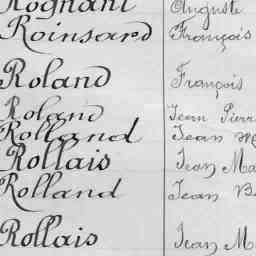 Rognant Auguste
Roinsard François
Roland François
Roland Jean Pierre
Rolland Jean
Rollais Jean Ma
Rolland Jean B
Rollais Jean M